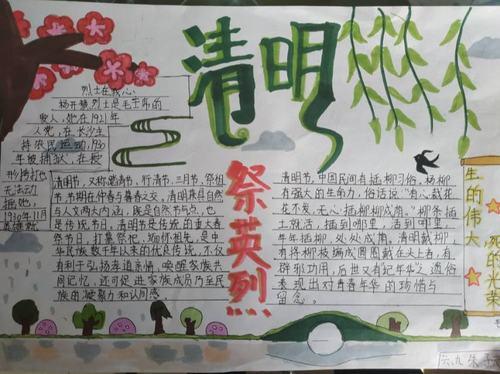 清明
祭英烈
烈士在我心
杨开慧烈士是毛主席的
爱人,她在1921年
入党,在长沙主
持农民运动,1930
年被捕狱,在敌
刑拷打也
无法动
摇她,
1930年11月
英雄就
清明节,又称踏清节、行清节、三月节、祭祖
节,节期在仲春与暮春之交,清明既是自然
与人文两大内涵,既是自然节气点,也
是传统节日,清明节是传统的重大春
祭节日,扫墓祭祀、缅怀祖先,是中
华民族数千年以来的优良传统,不仅
有利于弘扬孝道亲情、唤醒家族共
同记忆,还可促进家族成员乃至民
族的凝聚力和认同感
清明节,中国民间有插柳习俗,杨柳
有强大的生命力,俗话说:“有心栽花
花不发,无心插柳柳成荫。”柳条插
土就活,插到哪里,活到哪里,
年年插柳,处处成荫。清明戴柳,
有将柳枝编成圆圈戴在头上者,有
辟邪功用,后世又有纪年华之遗俗,
表现出对青春年华的珍惜与
留念。
生的伟大
死的光荣
六九 朱